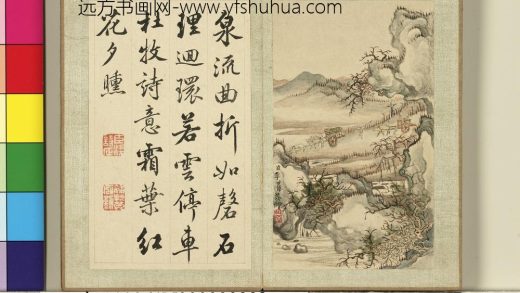 远方书画网-www.yfshuhua.com
泉流曲折如磬石
理迴環若雲停車
杜牧詩意霜葉紅
花夕曛